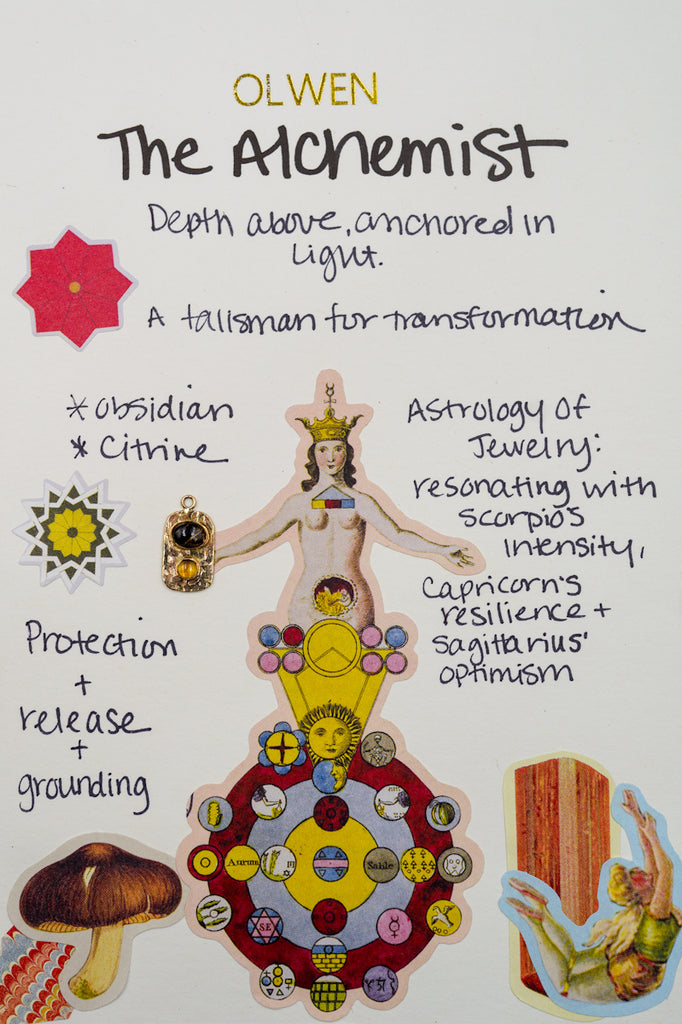 OLWEN
The Alchemist
Depth above, anchored in
Light.
A talisman for transformation
* Obsidian
* Citrine
Astrology Of
Jewelry:
resonating with
scorpio's
intensity,
Capricorn's
resilience +
sagittarius'
optimism
Protection
+
release
+
grounding
Aurum
Sable
SE